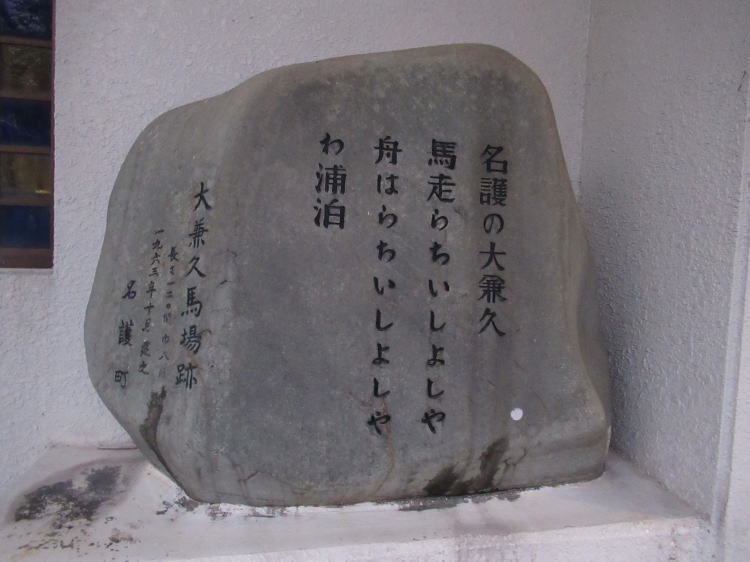 名護の大兼久
馬走らちいしよしや
舟はらちいしよしや
わ浦泊
大兼久馬場跡
長さ一二〇間巾八間
一九六三年十月建之
名護町